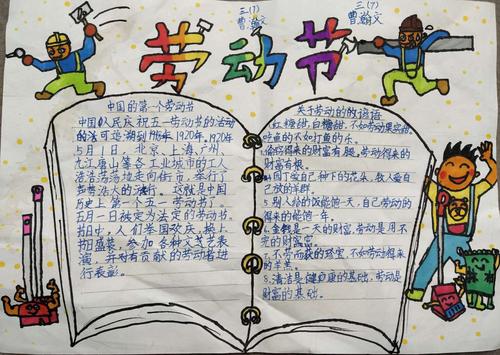 三(7)
曹瀚文
三(7)
曹瀚文
劳动节
中国的第一个劳动节
中国人民庆祝五一劳动节的活动
的法可追溯到1918年1920年,1920年
5月1日,北京、上海、广州、
九江唐山等各工业城市的工人
浩浩荡荡地走向街市,举行了
声势浩大的游行。这就是中国
历史上第一个五一劳动节了。
五月一日被定为法定的劳动节。
节日中,人们举国欢庆,换上
节日盛装,参加各种文艺表
演,并对有贡献的劳动者进
行表彰。
关于劳动的谚语
1.红糖甜,白糖甜,不如劳动果实甜。
吃鱼的不如打鱼的乐。
2.偷窃得来的财富有腿,劳动得来的
财富有根。
3.园丁爱自己种下的花朵,牧人爱自
己放的羊群。
4.别人给的饭能饱一天,自己劳动的
得来的能饱一年。
5.金钱是一天的财富,劳动是用不
完的财富。
7.不劳而获的珍宝,不如劳动得来
的羊羔。
8.清洁是健康的基础,劳动是
财富的基础。